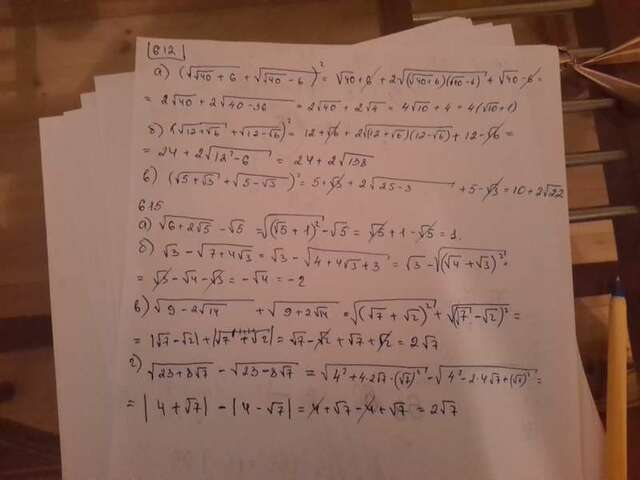 612
а) (√(√40 + 6) + √(√40 - 6))² = √40 + 6 + 2√((√40+6)(√40-6)) + √40 - 6 =
= 2√40 + 2√(40-36) = 2√40 + 2√4 = 4√10 + 4 = 4(√10+1)
б) (√(12+√6) + √(12-√6))² = 12+√6 + 2√((12+√6)(12-√6)) + 12-√6 =
= 24 + 2√(12²-6) = 24 + 2√138
в) (√(5+√3) + √(5-√3))² = 5+√3 + 2√(25-3) + 5-√3 = 10+2√22
615
а) √(6+2√5) - √5 = √((√5+1)²) - √5 = √5 + 1 - √5 = 1.
б) √3 - √(7+4√3) = √3 - √(4+4√3+3) = √3 - √((√4+√3)²) =
= √3 - √4 - √3 = -√4 = -2
в) √(9-2√14) + √(9+2√14) = √((√7+√2)²) + √((√7-√2)²) =
= |√7-√2| + |√7+√2| = √7-√2 + √7+√2 = 2√7
г) √(23+8√7) - √(23-8√7) = √(4²+4·2√7·(√7)²) - √(4²-2·4√7+(√7)²) =
= |4+√7| - |4-√7| = 4+√7-4+√7 = 2√7